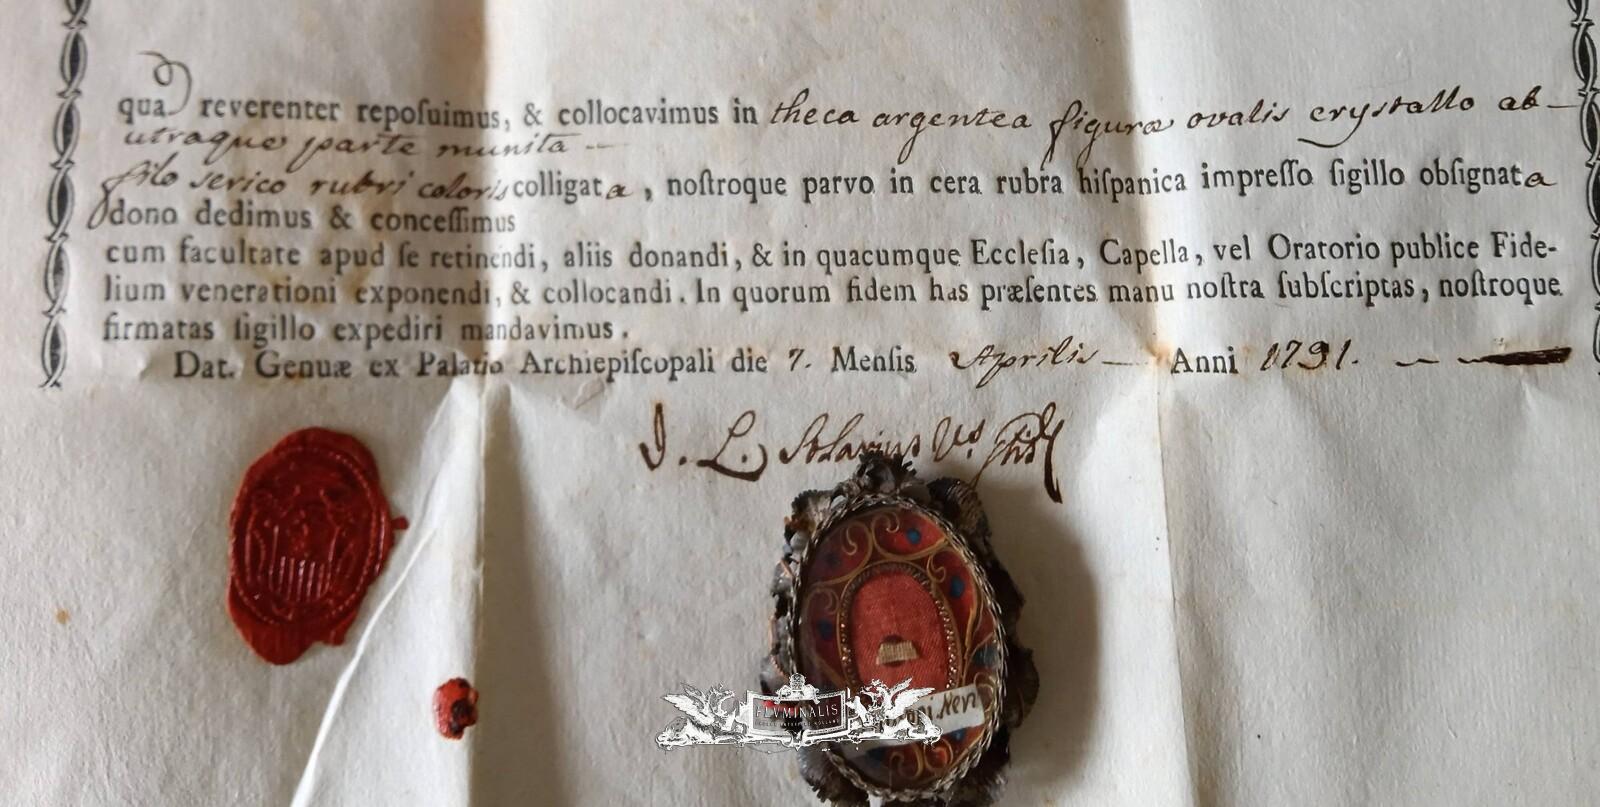 qua reverenter repoſuimus, & collocavimus in theca argentea figuræ ovalis crystallo ab
utraque parte munita
filo serico rubri coloris colligata, noſtroque parvo in cera rubra hiſpanica impreſſo ſigillo obſignata
dono dedimus & conceſſimus
cum facultate apud ſe retinendi, aliis donandi, & in quacumque Eccleſia, Capella, vel Oratorio publice Fide-
lium venerationi exponendi, & collocandi. In quorum fidem has præſentes manu noſtra ſubſcriptas, noſtroque
firmatas ſigillo expediri mandavimus.
Dat. Genuæ ex Palatio Archiepiſcopali die 7. Menſis Aprilis Anni 1791.
J. L. Solarius
Neri
FLVMINALIS